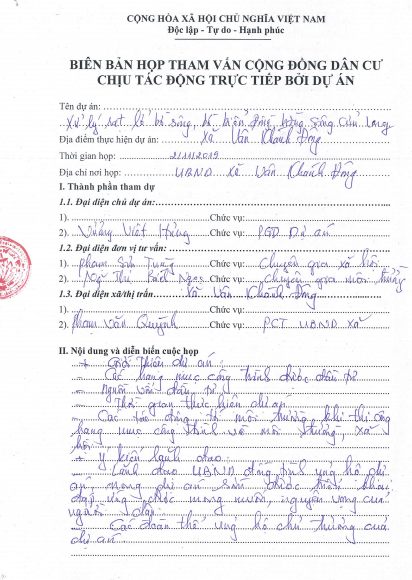 CỘNG HÒA XÃ HỘI CHỦ NGHĨA VIỆT NAM
Độc lập - Tự do - Hạnh phúc
BIÊN BẢN HỌP THAM VẤN CỘNG ĐỒNG DÂN CƯ
CHỊU TÁC ĐỘNG TRỰC TIẾP BỞI DỰ ÁN
Tên dự án:
Xử lý sạt lở bờ sông, bờ biển đồng bằng sông Cửu Long
Địa điểm thực hiện dự án: Xã Vân Khánh Đông
Thời gian họp: 2/11/2019
Địa chỉ nơi họp: UBND xã Vân Khánh Đông
I. Thành phần tham dự
1.1. Đại diện chủ dự án:
1). Chức vụ:
2). Vương Việt Hùng Chức vụ: PGĐ Dự án
1.2. Đại diện đơn vị tư vấn:
1). Phạm Sơn Tùng Chức vụ: Chuyên gia xã hội
2). Ngô Thị Bích Ngọc Chức vụ: Chuyên gia môi trường
1.3. Đại diện xã/thị trấn Xã Vân Khánh Đông
1). Chức vụ:
2). Phạm Văn Quỳnh Chức vụ: PCT UBND xã
II. Nội dung và diễn biến cuộc họp
+ Giới thiệu dự án:
- Các hạng mục công trình được đầu tư
- Nguồn vốn đầu tư
- Thời gian thực hiện dự án
- Các tác động tới môi trường khi thi công
hạng mục công trình về môi trường, xã
hội
+ Ý kiến lãnh đạo:
- Lãnh đạo UBND đồng tình ủng hộ dự
án, mong dự án sớm được triển khai
đáp ứng được mong muốn, nguyện vọng của
người dân
- Các đoàn thể ủng hộ chủ trương của
dự án